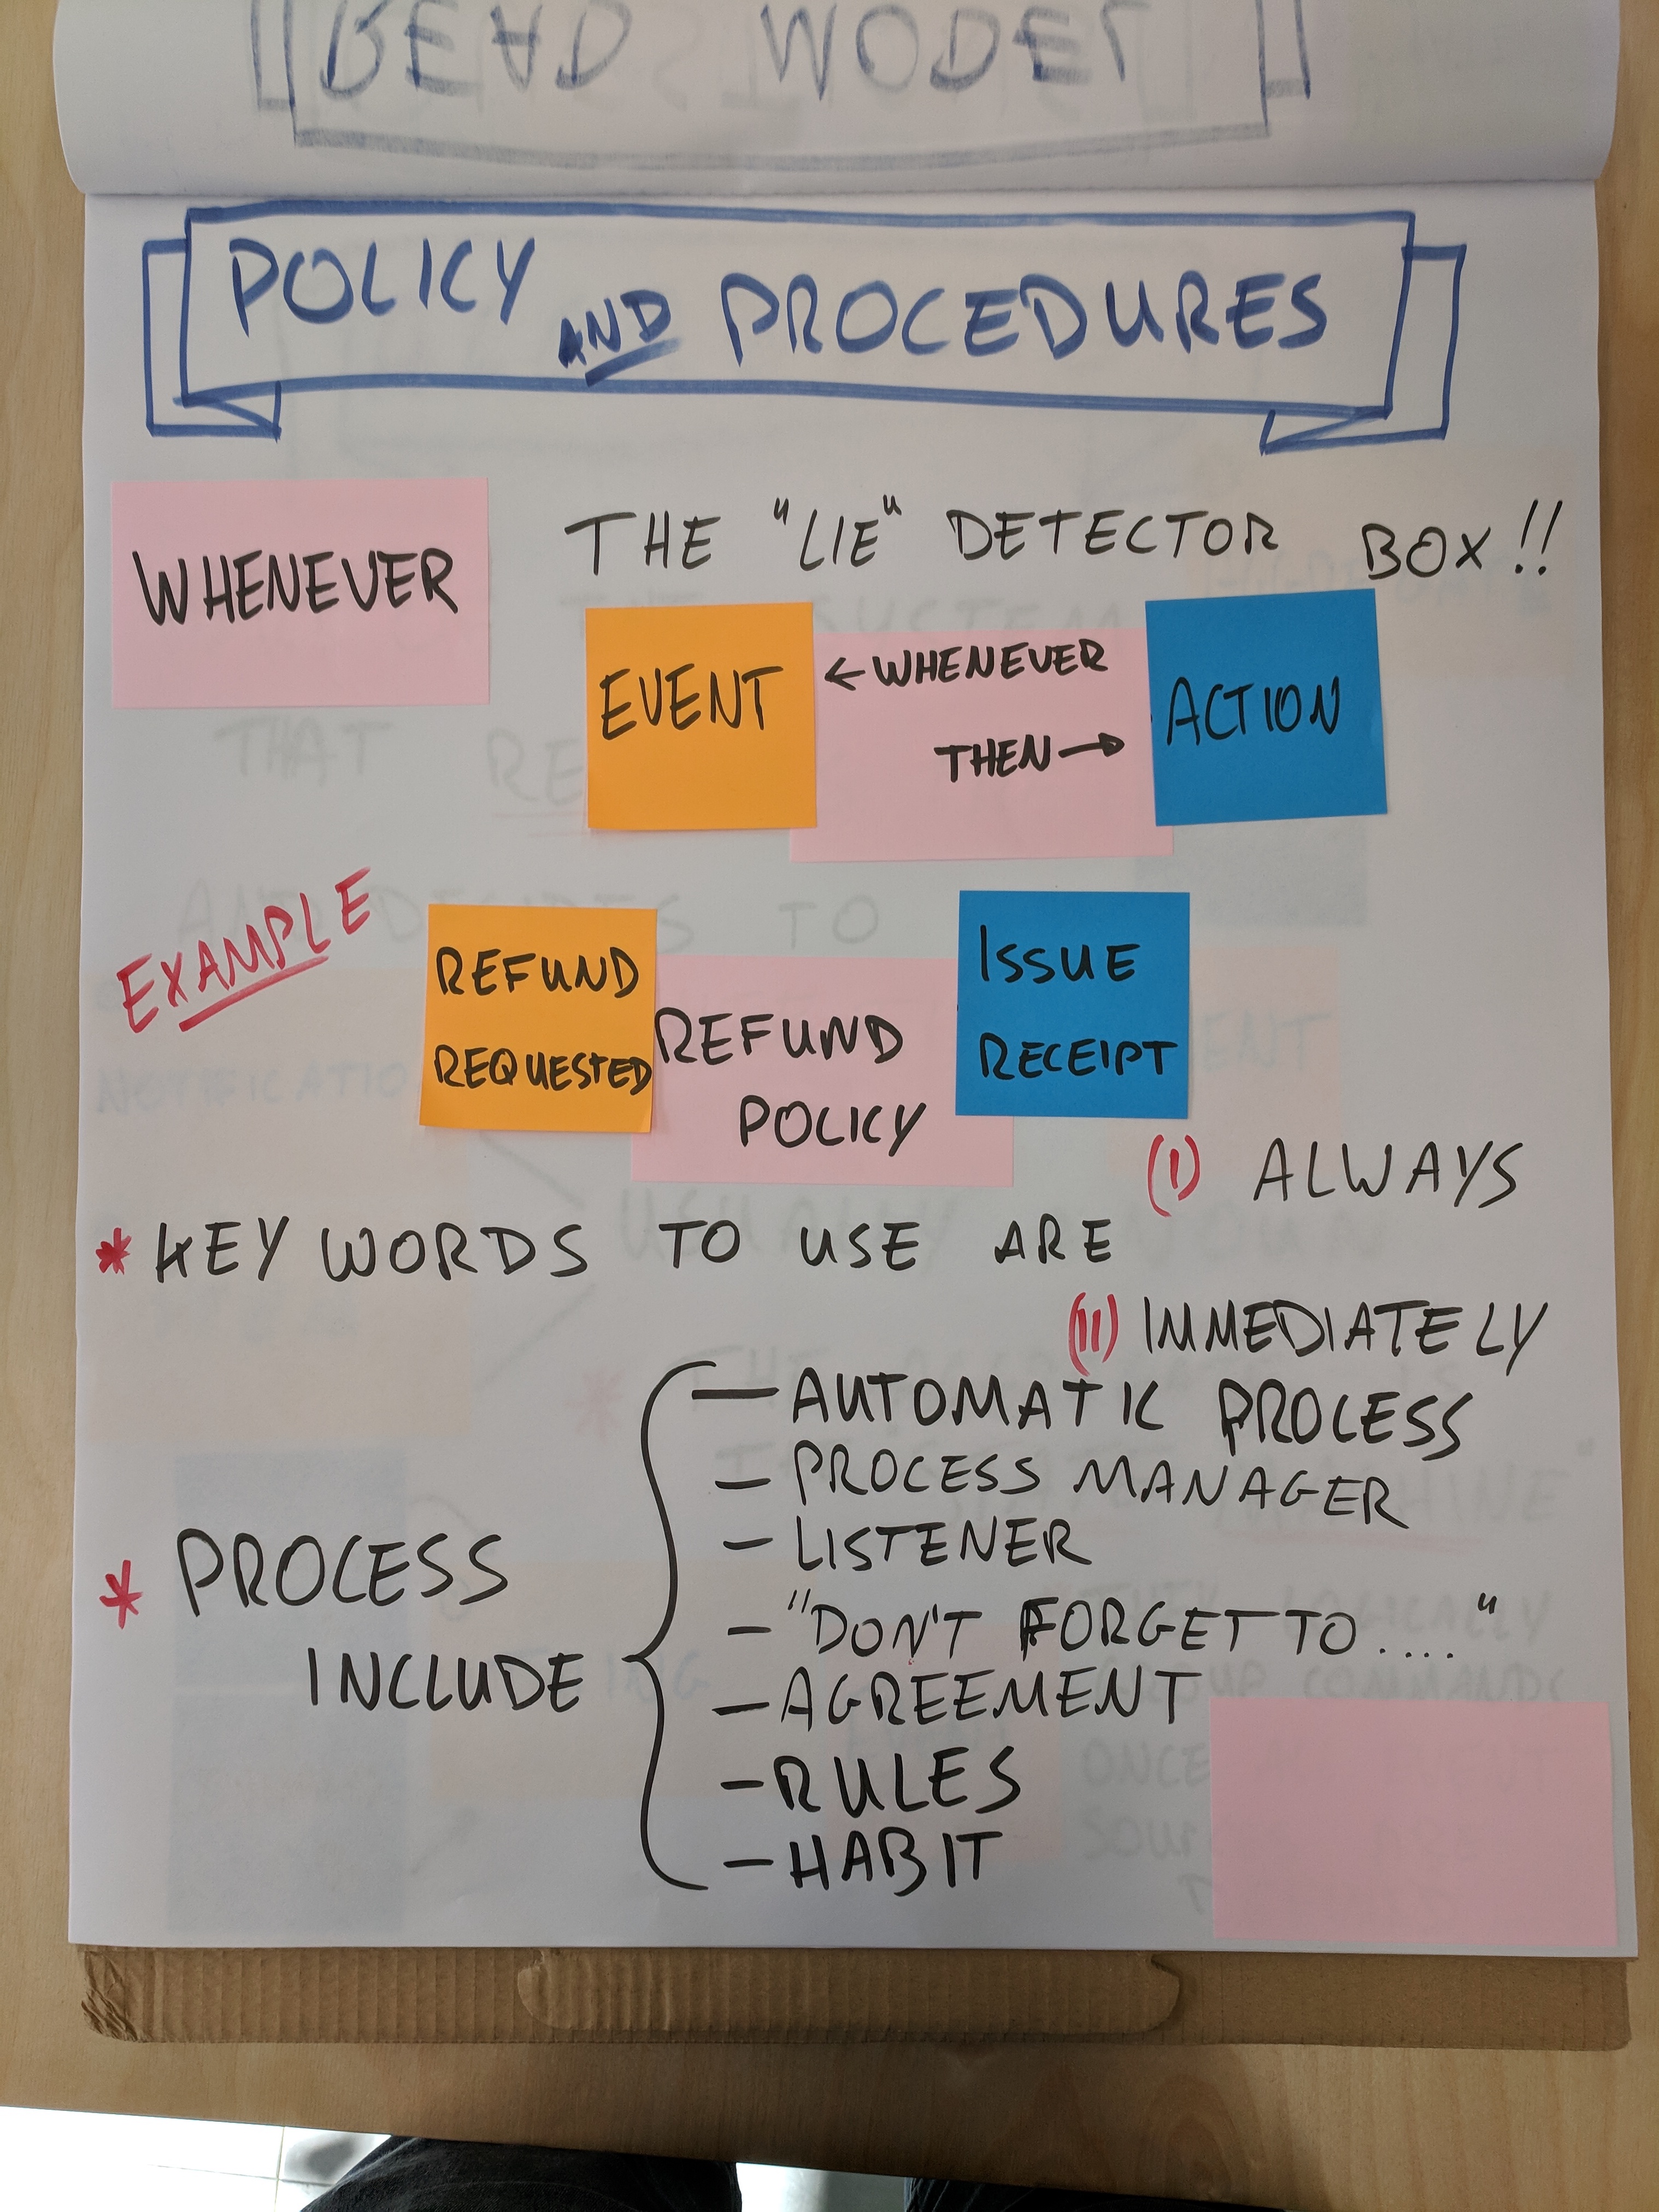 READ MODEL
POLICY AND PROCEDURES
WHENEVER
THE "LIE" DETECTOR BOX!!
EVENT
←WHENEVER
THEN→
ACTION
EXAMPLE
REFUND
REQUESTED
REFUND
POLICY
ISSUE
RECEIPT
* KEY WORDS TO USE ARE
(I) ALWAYS
(II) IMMEDIATELY
* PROCESS
INCLUDE
— AUTOMATIC PROCESS
— PROCESS MANAGER
— LISTENER
— "DON'T FORGET TO...."
— AGREEMENT
— RULES
— HABIT